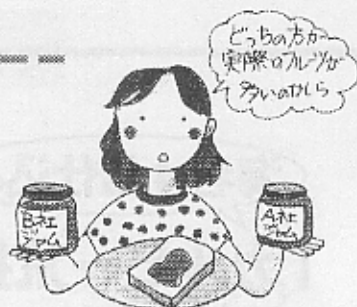 どっちの方が
実際のフルーツが
多いのかしら
B社
ジャム
A社
ジャム